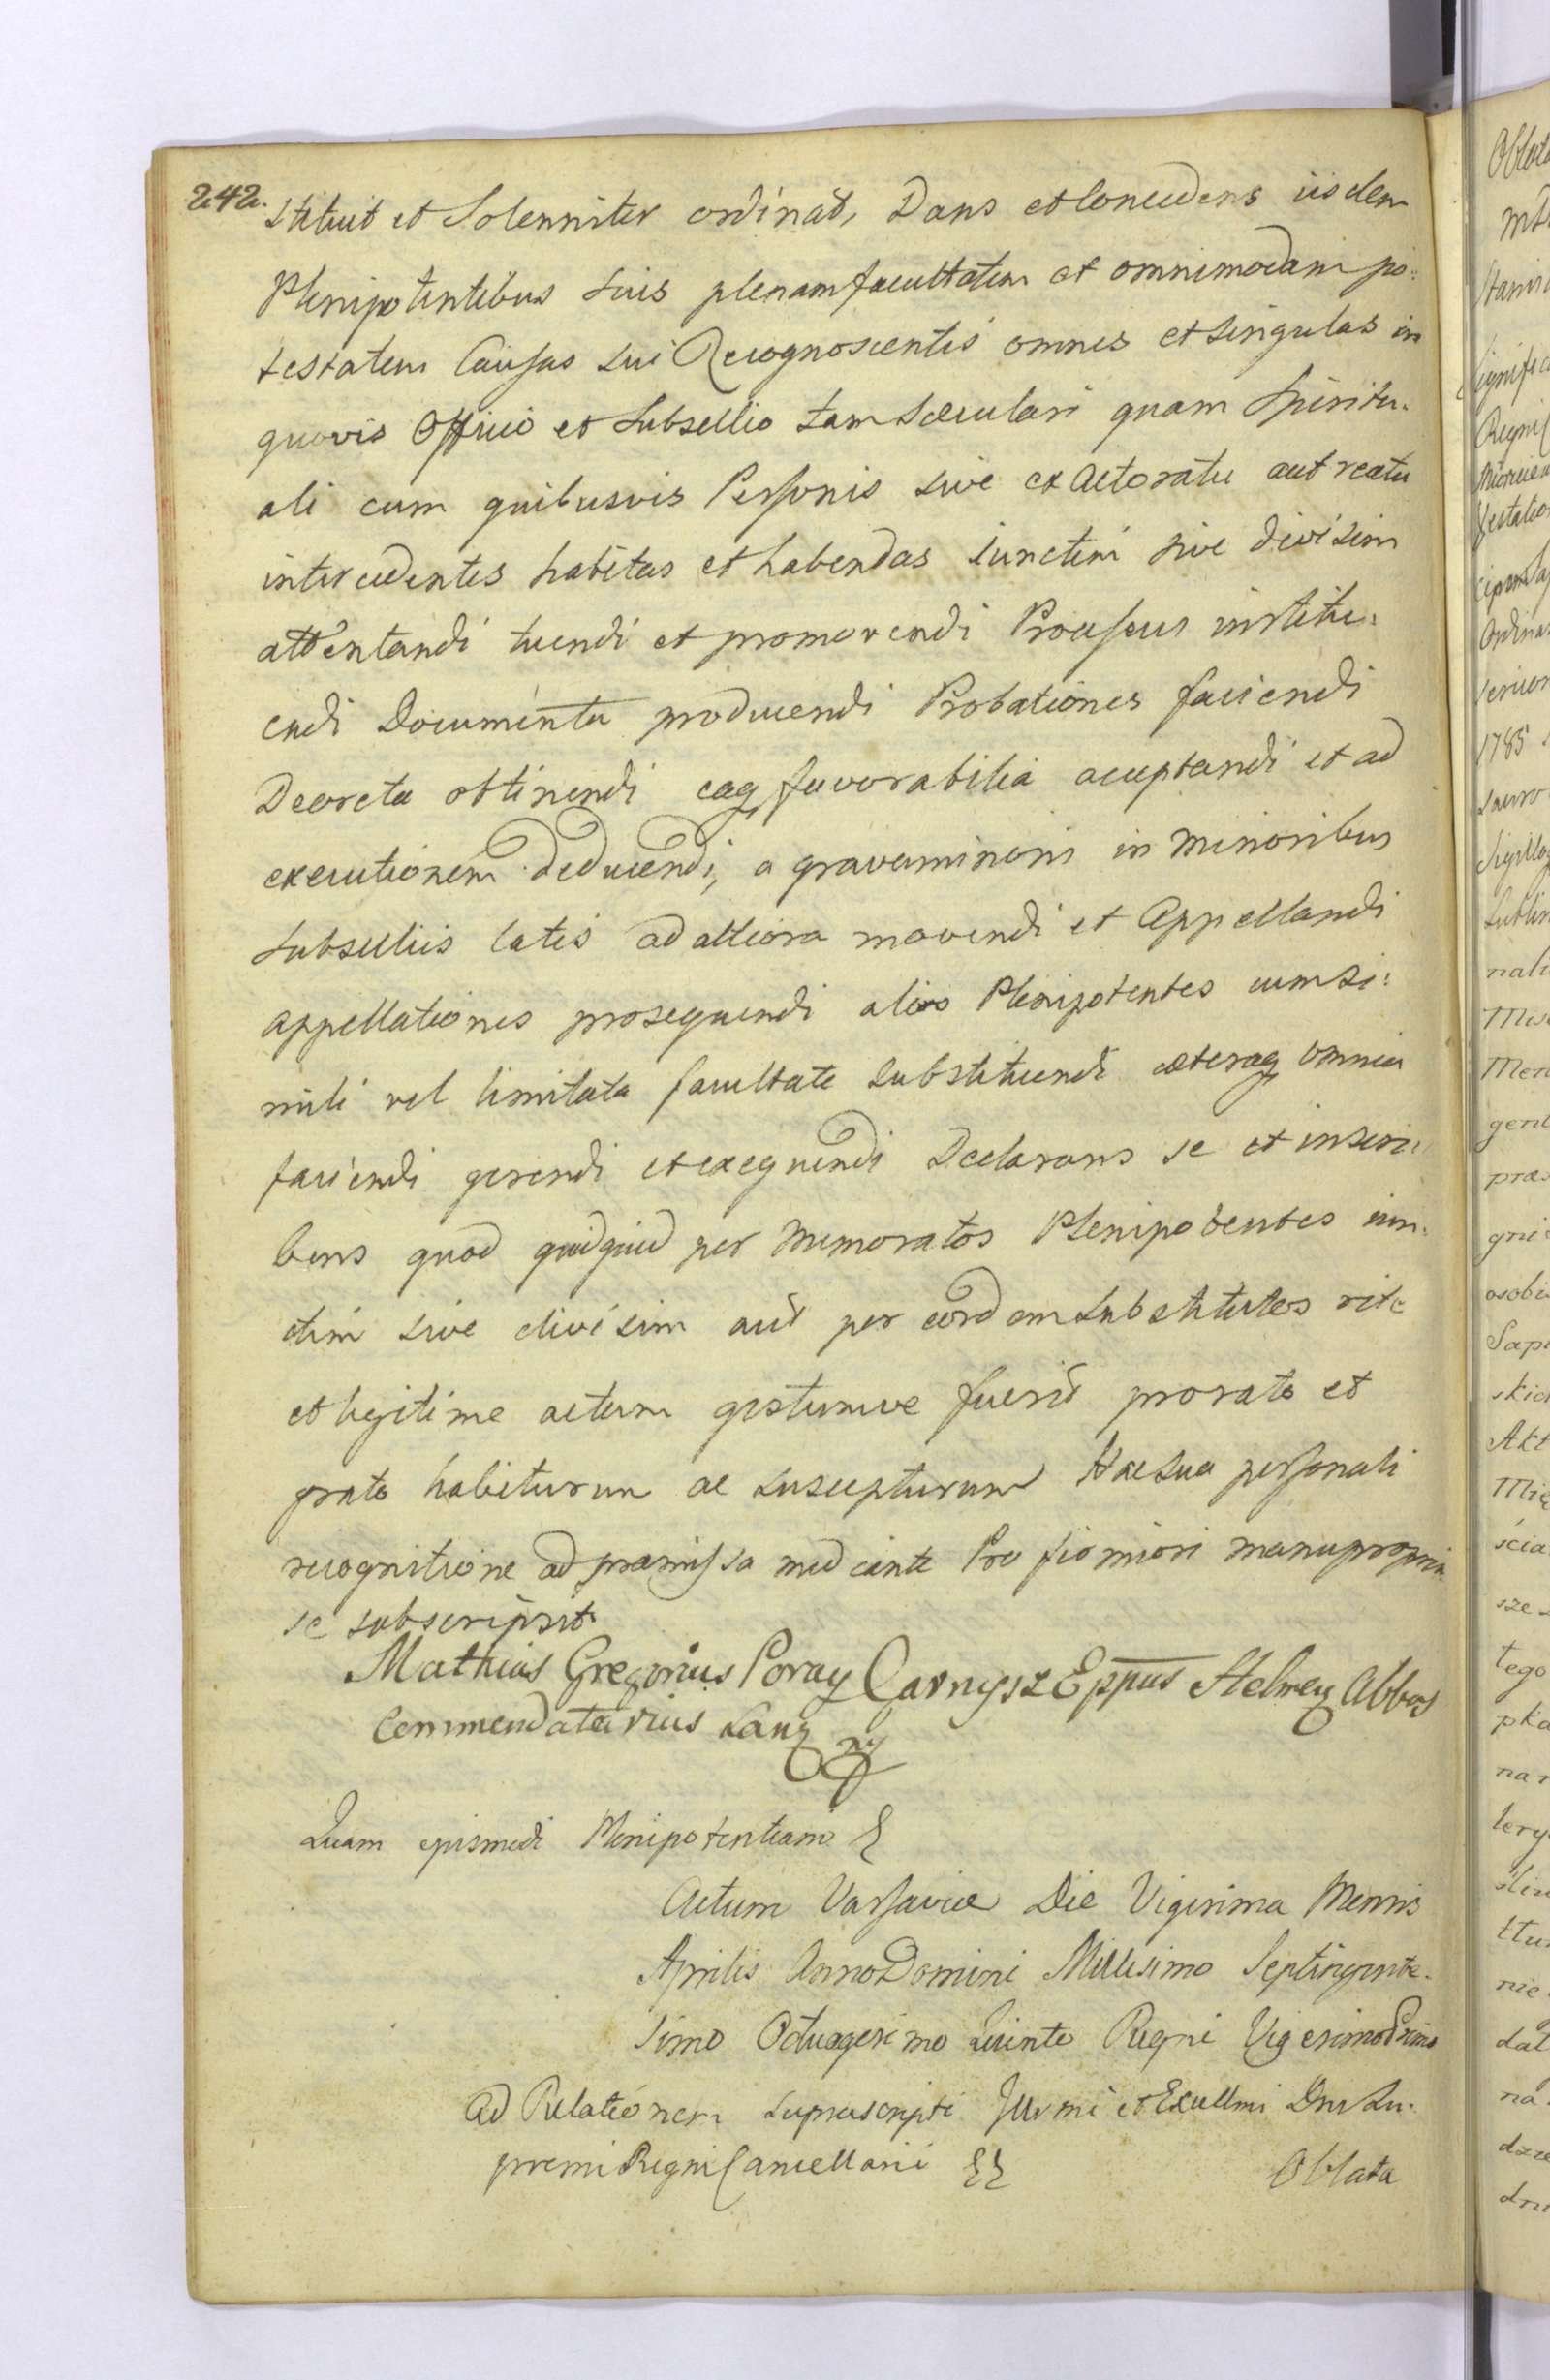 242.
stituit et Solenniter ordinat, Dans et Concedens iisdem
Plenipotentibus suis plenam facultatem et omnimodam po:
testatem Causas sui Recognoscentis omnes et singulas in
quovis Officio et Subsellio tam Sæculari quam Spiritu-
ali cum quibusvis Personis sive ex Actoratu aut reatu
intercedentes habitas et habendas iunctim sive divisim
attentandi tuendi et promovendi Processus institu:
endi Documenta producendi Probationes faciendi
Decreta obtinendi eaq favorabilia acceptandi et ad
executionem deducendi, a gravaminoris in Minoribus
Subselliis latis ad altiora movendi et Appellandi
appellationes prosequendi alios Plenipotentes cum si:
mili vel limitata facultate substituendi cæteraq omnia
faciendi gerendi et exequendi Declarans se et inscri:
bens quod quidquid per Memoratos Plenipotentes iun-
ctim sive divisim aut per eosdem substitutos rite
et legitime actum gestumve fuerit pro rato et
grato habiturum ac suscepturum Hac sua personali
recognitione ad præmissa mediante Pro firmiori manu propria
se subscripsit
Mathias Gregorius Poray Garnysz Eppus Chelmen Abbas
Commendatarius Landen
Quam eiusmodi Plenipotentiam
Actum Varsaviæ Die Vigesima Mensis
Aprilis Anno Domini Millesimo Septingente-
simo Octuagesimo Quinto Regni Vigesimo Primo
ad Relationem suprascripti Illrmi et Excellmi Dni Su-
premi Regni Cancellarii
Oblata